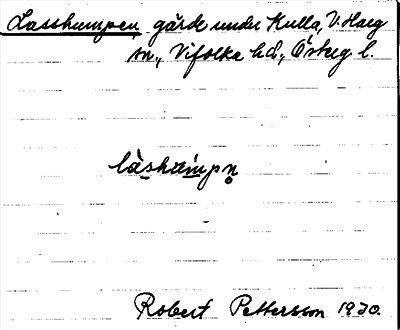 Lasskumpen, gärde under Kulla, V. Harg
sn., Vifolka hd., Östergl.
làskum̀pn̥
Robert Pettersson 1930.